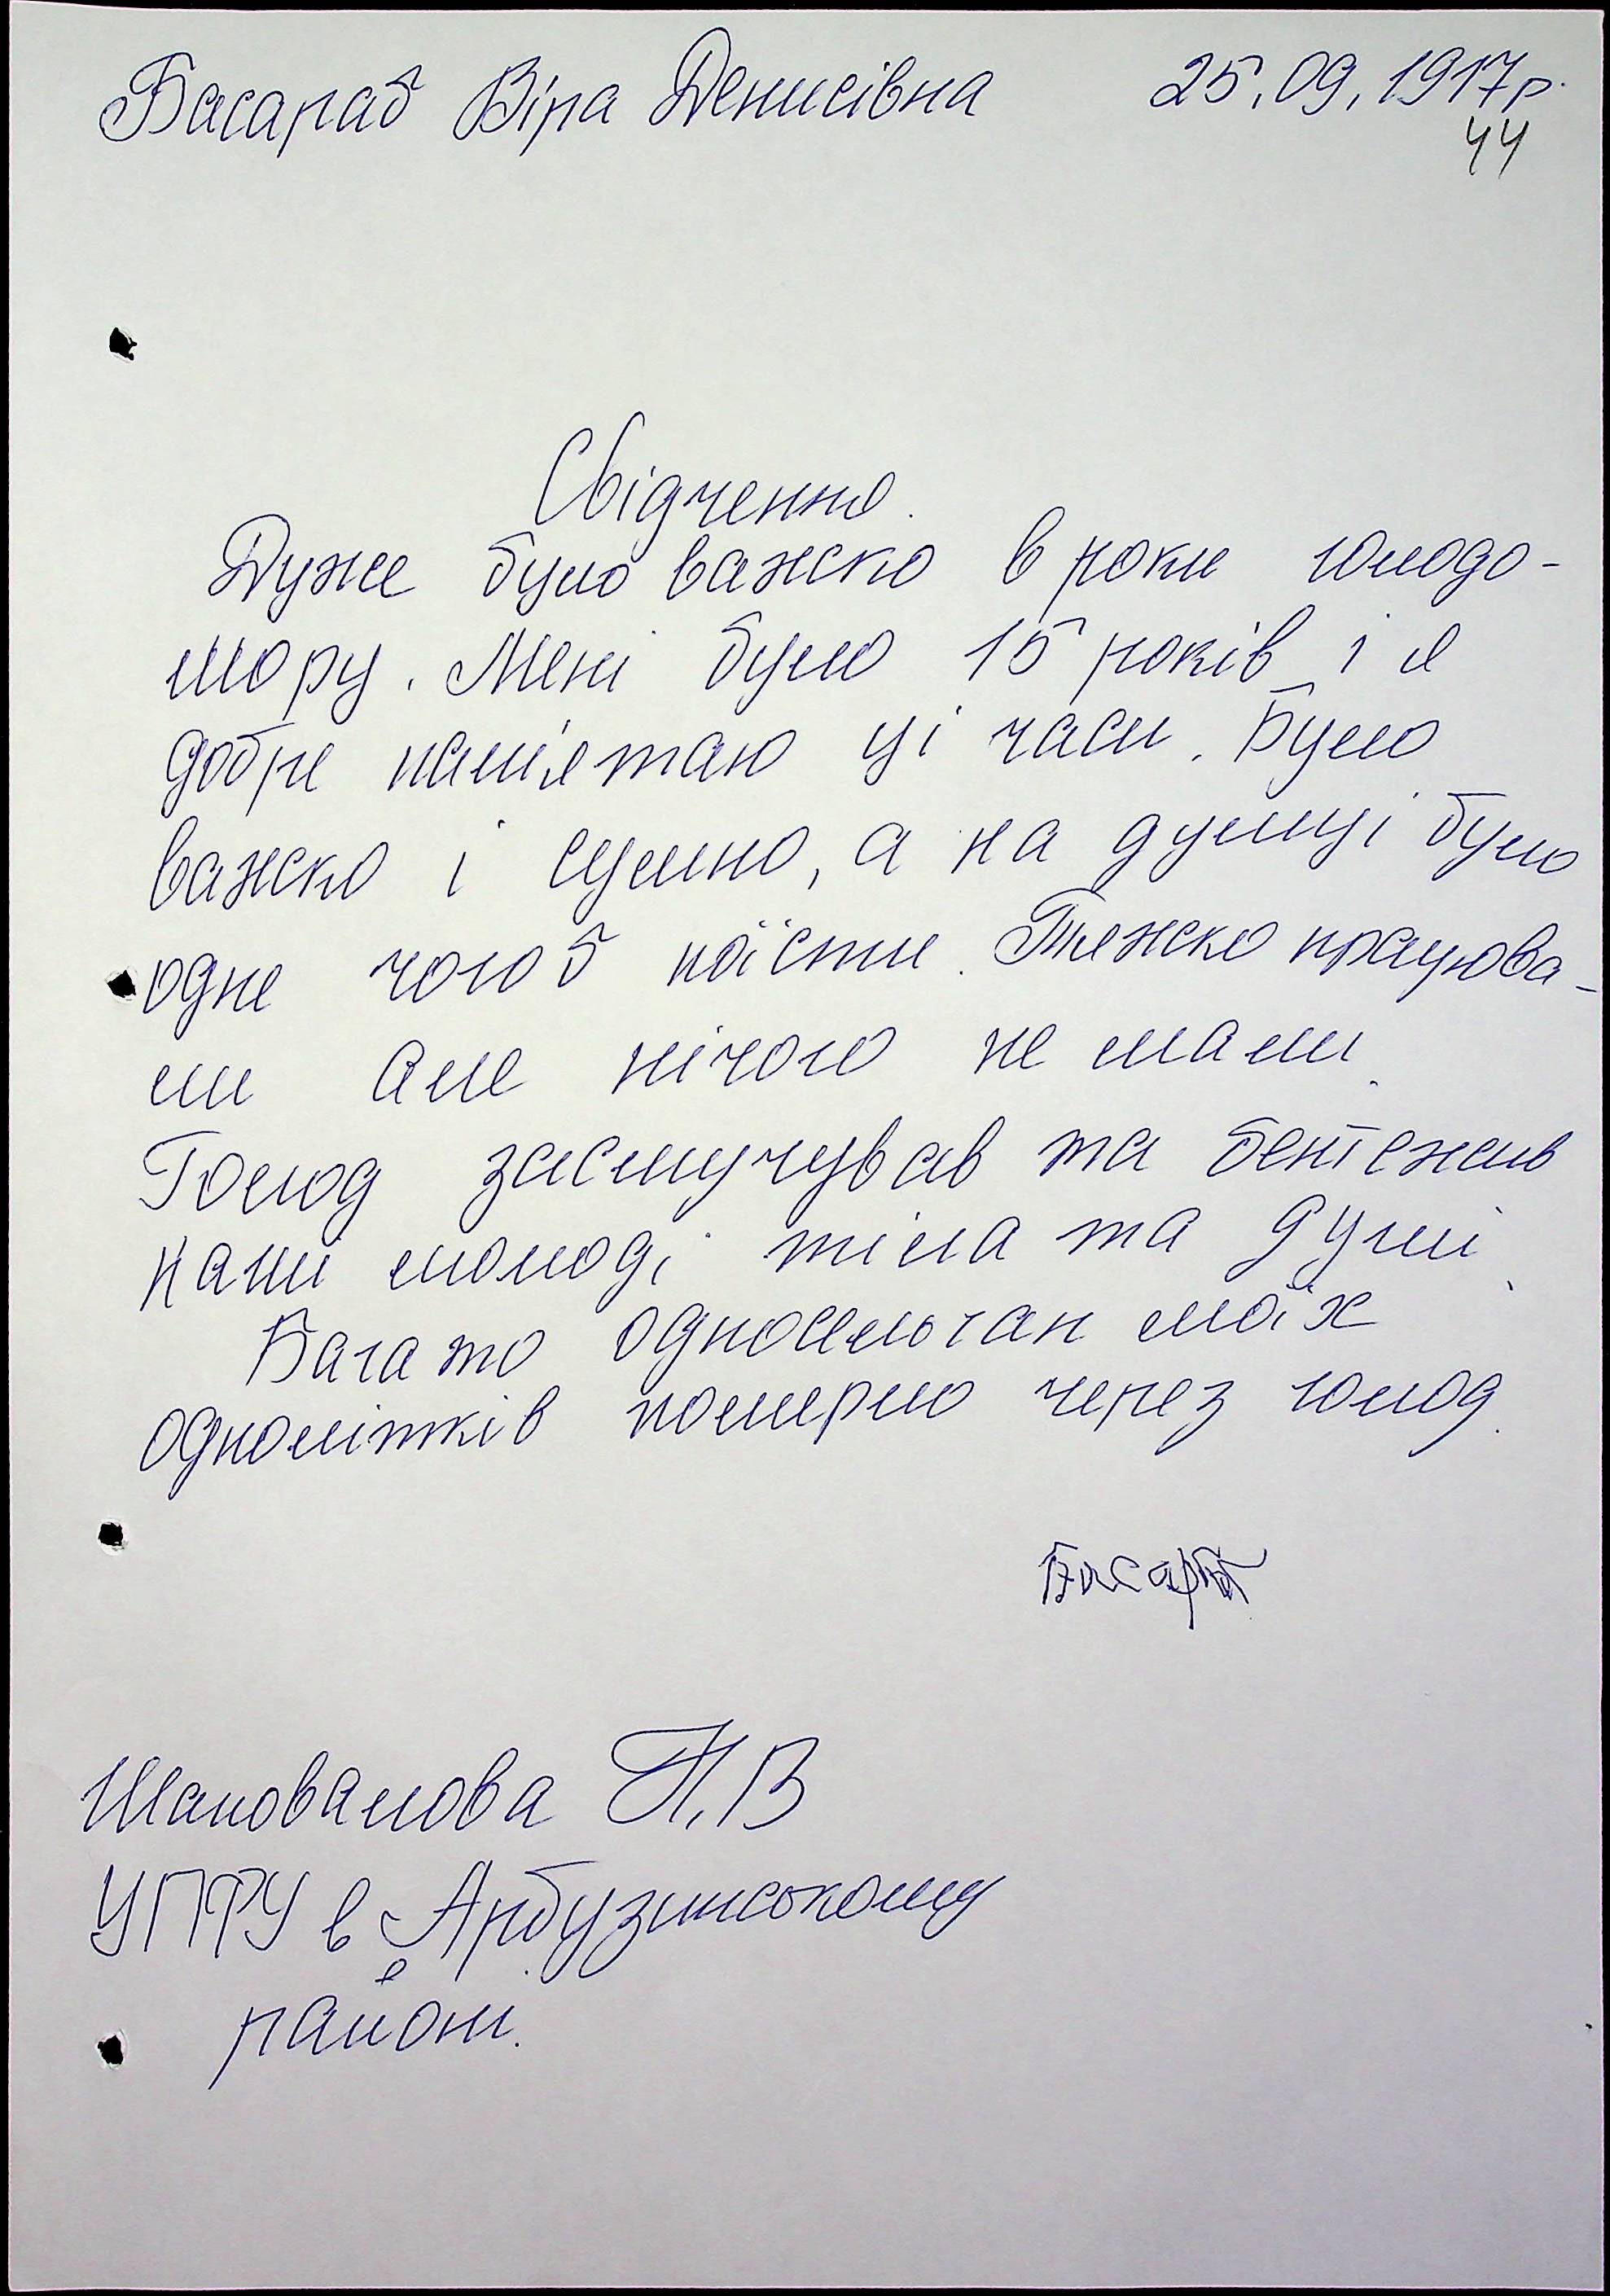 Басараб Віра Денисівна 25.09.1917р.
44
Свідчення.
Дуже було важко в роки голодо-
мору. Мені було 15 років і я
добре пам'ятаю ці часи. Було
важко і сумно, а на думці було
одне чогоб поїсти. Тяжко працюва-
ли але нічого не мали.
Голод засмучував та бентежив
наші молоді тіла та душі.
Багато односельчан моїх
однолітків померло через голод.
Басараб
Шаповалова Н.В
УПФУ в Арбузинському
районі.